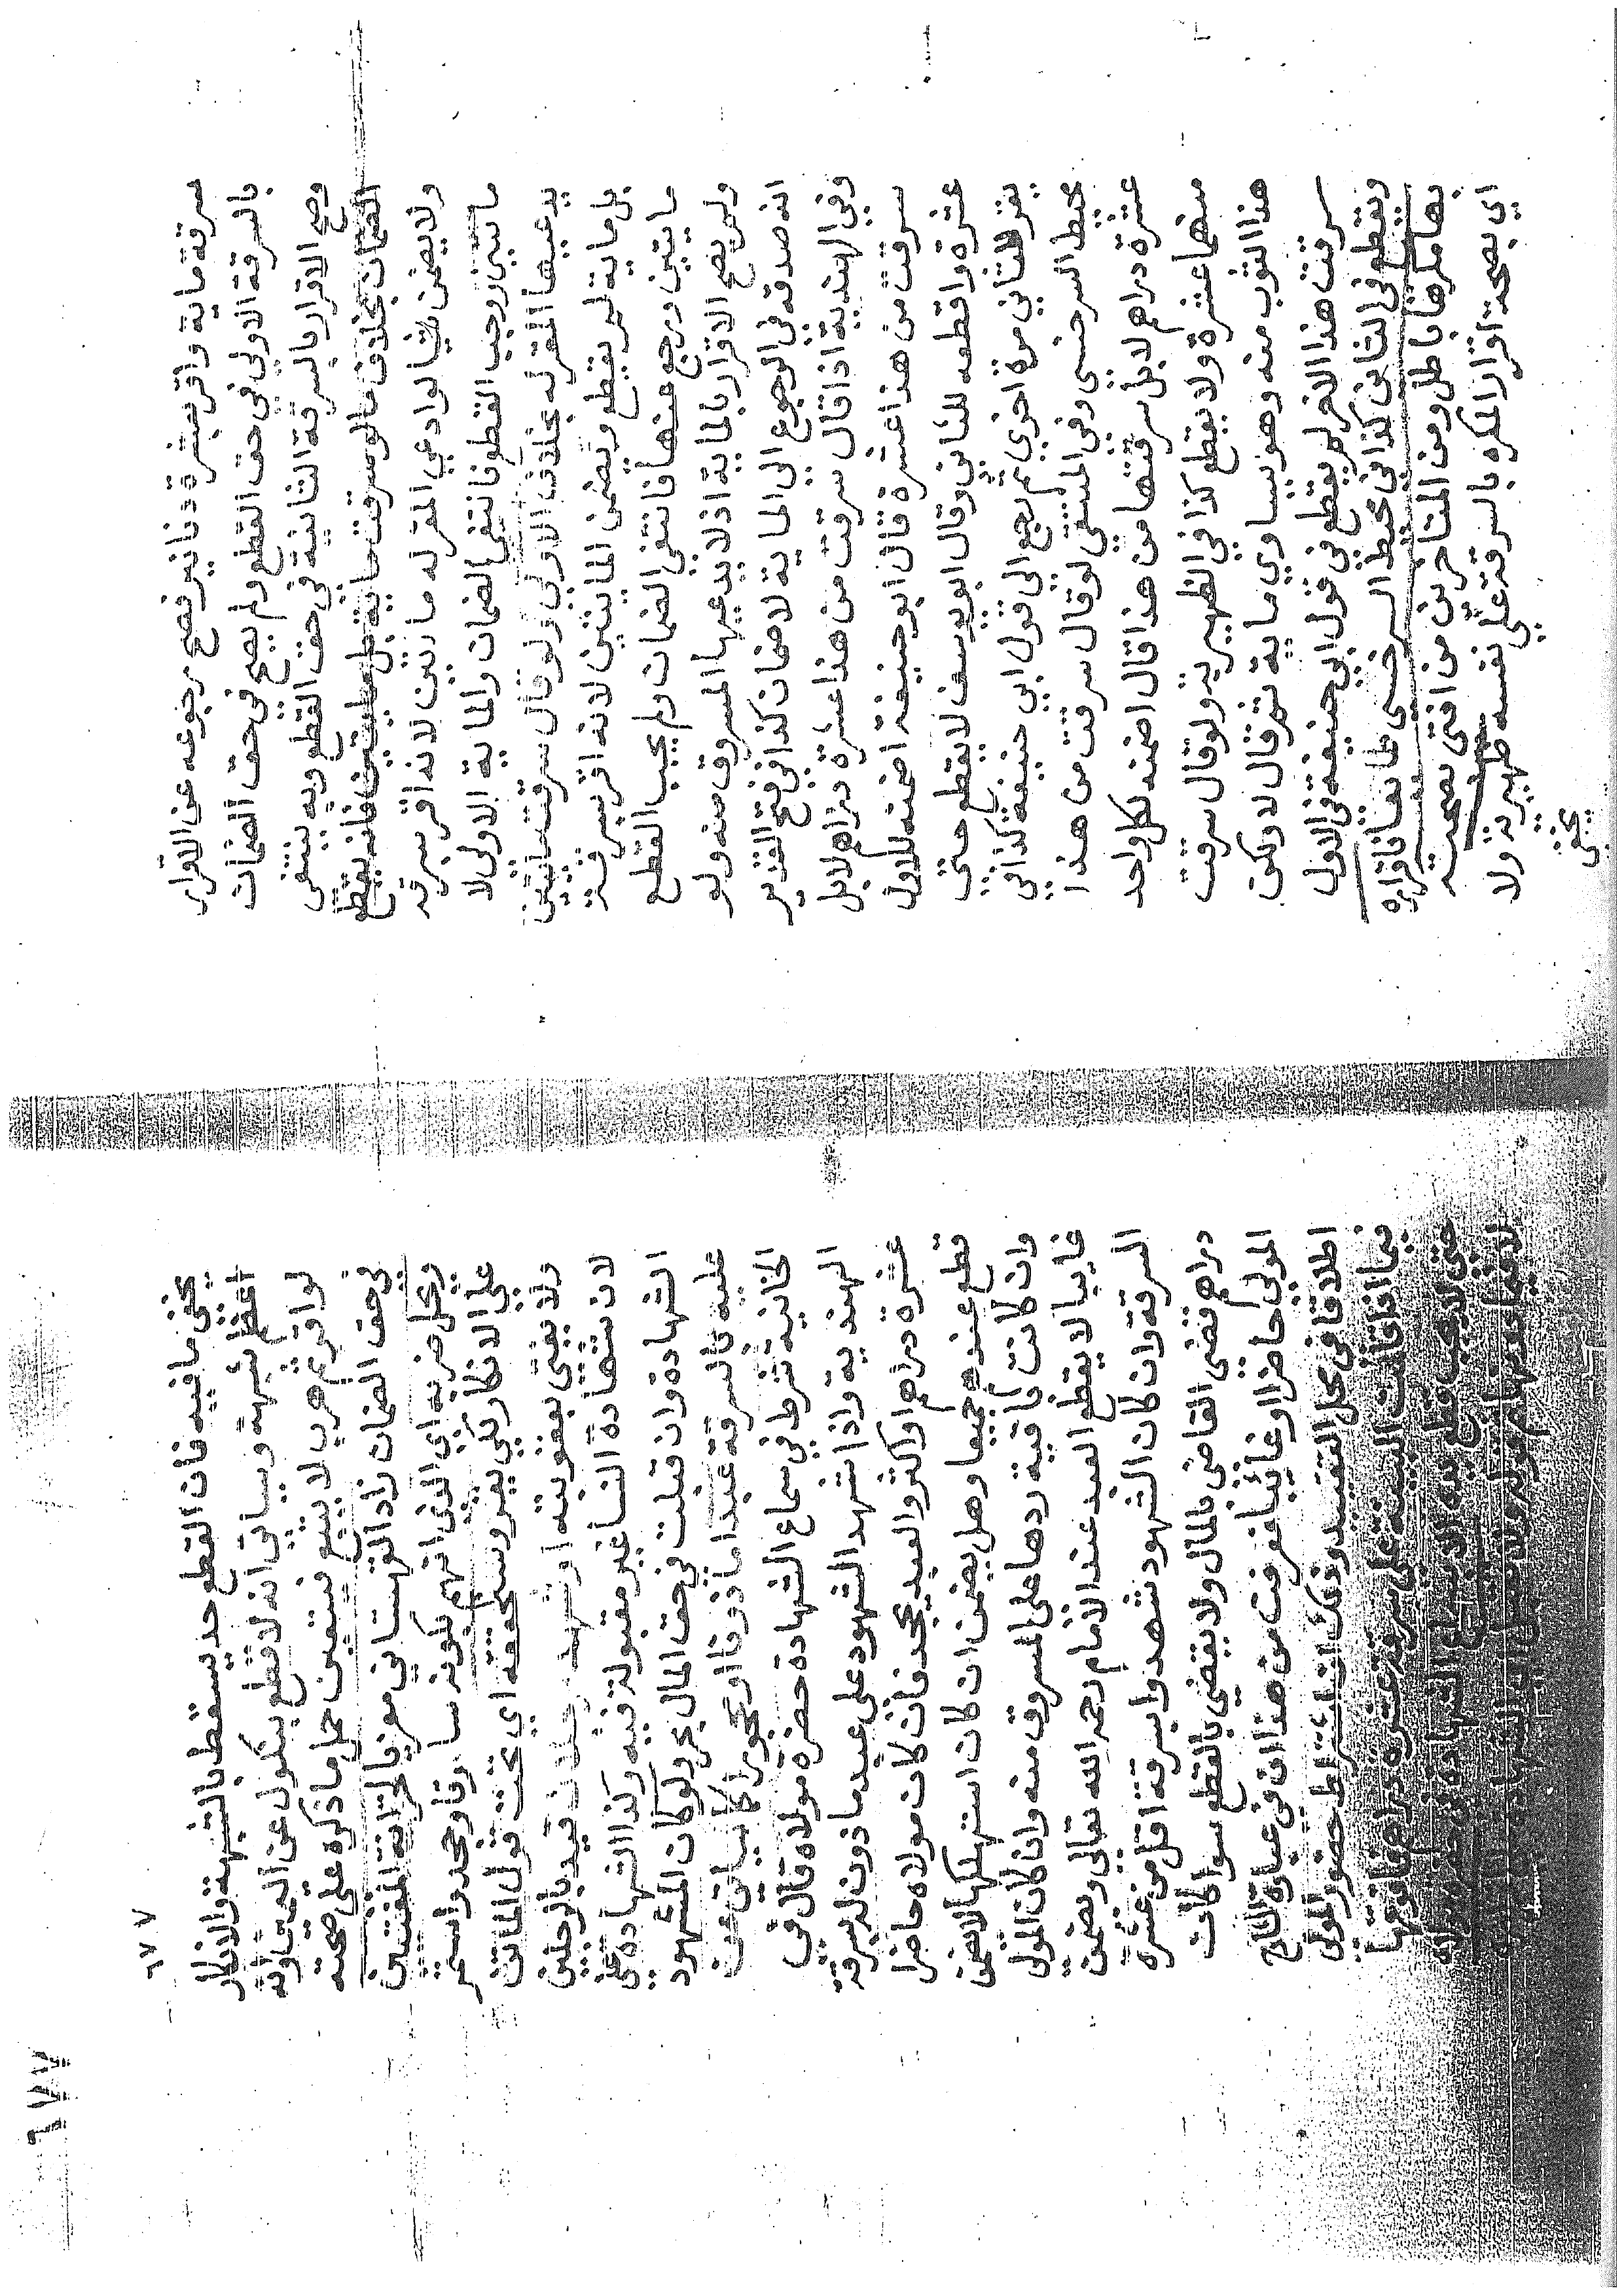 سرقة ماية واقر بعشرة دنانير فصح رجوعه عن الاقرار
بالسرقة الاولي في حق القطع ولم يصح في حق الضمان
وصح الاقرار بالسرقة الثانية في حق القطع وبه ينتفى
الضمان بخلاف ما لو سرقت ماية بل مايتين فانه يقطع
ولا يضمن شيا لو ادعي المقر له مايتين لانه اقر بسرقة
مايتين ووجب القطع فانتفى الضمان والماية الاولى لا
يدعيها المقر له بخلاف الاولي ولو قال سرقت مايتين
بل ماية لم يقطع ويضمن المايتين لانه اقر بسرقة
مايتين ورجع عنها فانتفى الضمان ولم يجب القطع
ولم يصح الاقرار بالماية اذ لا يدعيها المسروق منه ولو
انه صدقه في الرجوع الى الماية لا ضمان كذا في فتح القدير
وفي الهندية اذا قال سرقت من هذا عشرة دراهم لا بل
سرقت من هذا عشرة قال ابو حنيفة اضمنه للاول
عشرة واقطعه للثاني وقال ابو يوسف لا يقطع حتى
يقر للثاني مرة اخري ثم رجع الي قول ابي حنيفة كذا في
محيط السرخسى وفي المنتقى لو قال سرقت من هذا
عشرة دراهم لا بل سرقتها من هذا قال اضمنه لكل واحد
منهما عشرة ولا يقطع كذا في الظهيرية ولو قال سرقت
هذا الثوب منه وهو يساوي ماية ثم قال لا ولكن
سرقت هذا الاخر لم يقطع في قول ابي حنيفة في الاول
ويقطع في الثاني كذا في محيط السرخسى طايعا فاقراره
بها مكرها باطل ومن المتاخرين من افتى بصحته
اي بصحة اقرار المكره بالسرقة على نفسه ظهيرية ولا
يخفى
٦٧٧
٦٧٧
يخفى ما فيه فان القطع حد يسقط بالشبهة والانكار
اعظم شبهة وسياتي انه لا قطع بنكول عن اليمين وانه
لو اقر ثم هرب لا يتبع فتعين حمل ما ذكره علي صحته
في حق الضمان زاد القهستاني معزيا لخزانة المفتين
ويحل ضربه اي الذي اتهم بكونه سارقا وجحد واستمر
علي الانكار لكي يقر وسنحققه اي تحت قول الماتن
ولا يفتى بعقوبته او شهد رجلان قيد بالرجلين
لان شهادة النسا غير مقبولة فيه وكذا الشهادة على
الشهادة وان قبلت في حق المال بحر ولو كان المشهود
عليه بالسرقة عبدا ماذونا او محجورا كما سياتي عن
الخانية شرط في سماع الشهادة حضرة مولاه قال في
الهندية واذا شهد الشهود على عبد ماذون له بسرقة
عشرة دراهم او اكثر والعبد يجحد فان كان مولاه حاضرا
قطع عندهم جميعا وهل يضمن ان كان استهلكها لا يضمن
وان كانت باقية ردها على المسروق منه وان كان المولى
غايبا لا يقطع العبد عند الامام رحمه الله تعالي ويضمن
السرقة وان كان الشهود شهدوا بسرقة اقل من عشرة
دراهم قضى القاضي بالمال ولا يقضي بالقطع سوا كان
المولى حاضرا او غائبا فعرفت من هذا ان في عبارة الشارح
اطلاقا في محل التقييد وذلك ان اشتراط حضور المولى
فيما اذا قامت البينة على سرقة عشرة دراهم فما فوقها
حتى لا يجب قطع يده الا بسماع الشهادة في حضرة مولاه